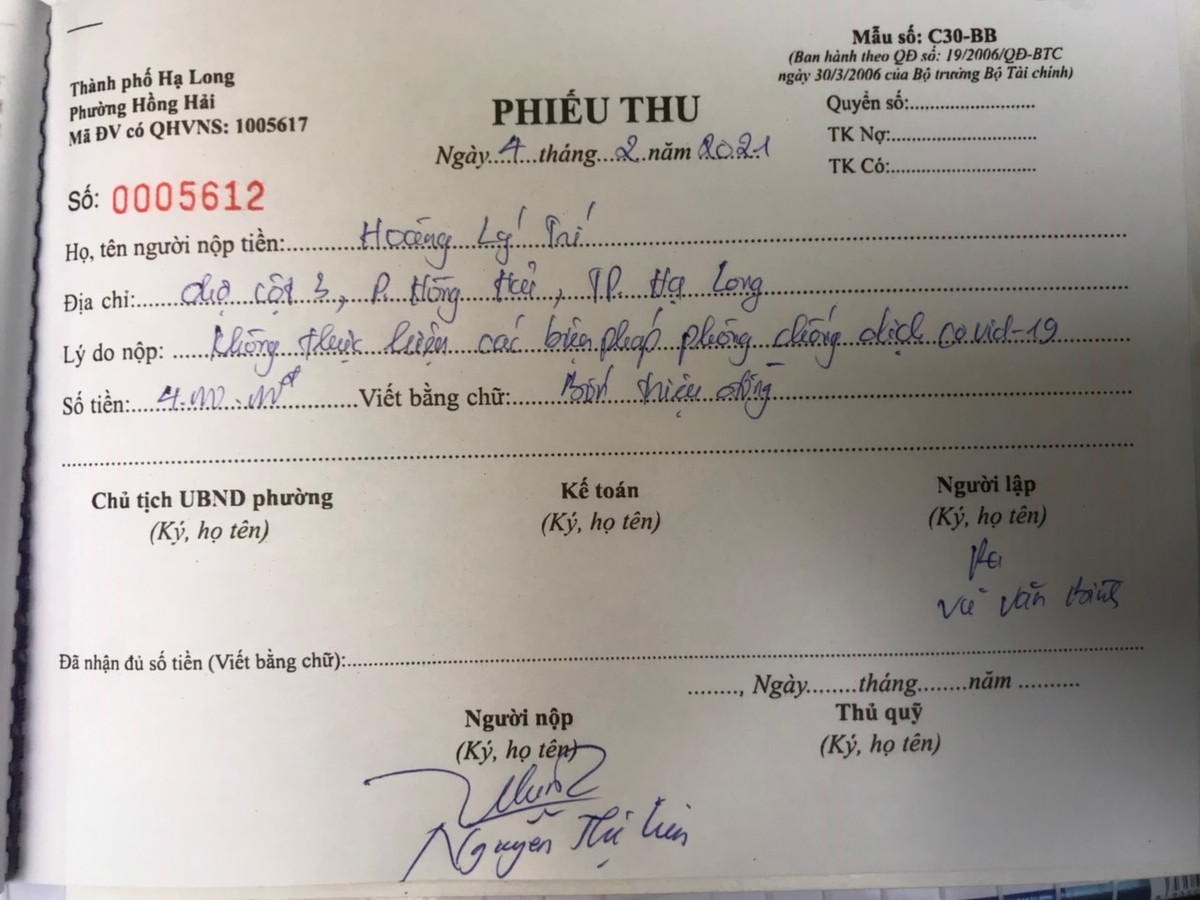 Mẫu số: C30-BB
(Ban hành theo QĐ số: 19/2006/QĐ-BTC
ngày 30/3/2006 của Bộ trưởng Bộ Tài chính)
Thành phố Hạ Long
Phường Hồng Hải
Mã ĐV có QHVNS: 1005617
Quyển số:
TK Nợ:
TK Có:
PHIẾU THU
Ngày 4 tháng 2 năm 2021
Số: 0005612
Họ, tên người nộp tiền: Hoàng Lý Trí
Địa chỉ: chợ cột 3, P. Hồng Hải, TP. Hạ Long
Lý do nộp: không thực hiện các biện pháp phòng chống dịch covid-19
Số tiền: 4.000.000đ Viết bằng chữ: Bốn triệu đồng
Chủ tịch UBND phường Kế toán Người lập
(Ký, họ tên) (Ký, họ tên) (Ký, họ tên)
Vũ Văn
Đã nhận đủ số tiền (Viết bằng chữ):
, Ngày tháng năm
Người nộp Thủ quỹ
(Ký, họ tên) (Ký, họ tên)
Nguyễn Thị Liên